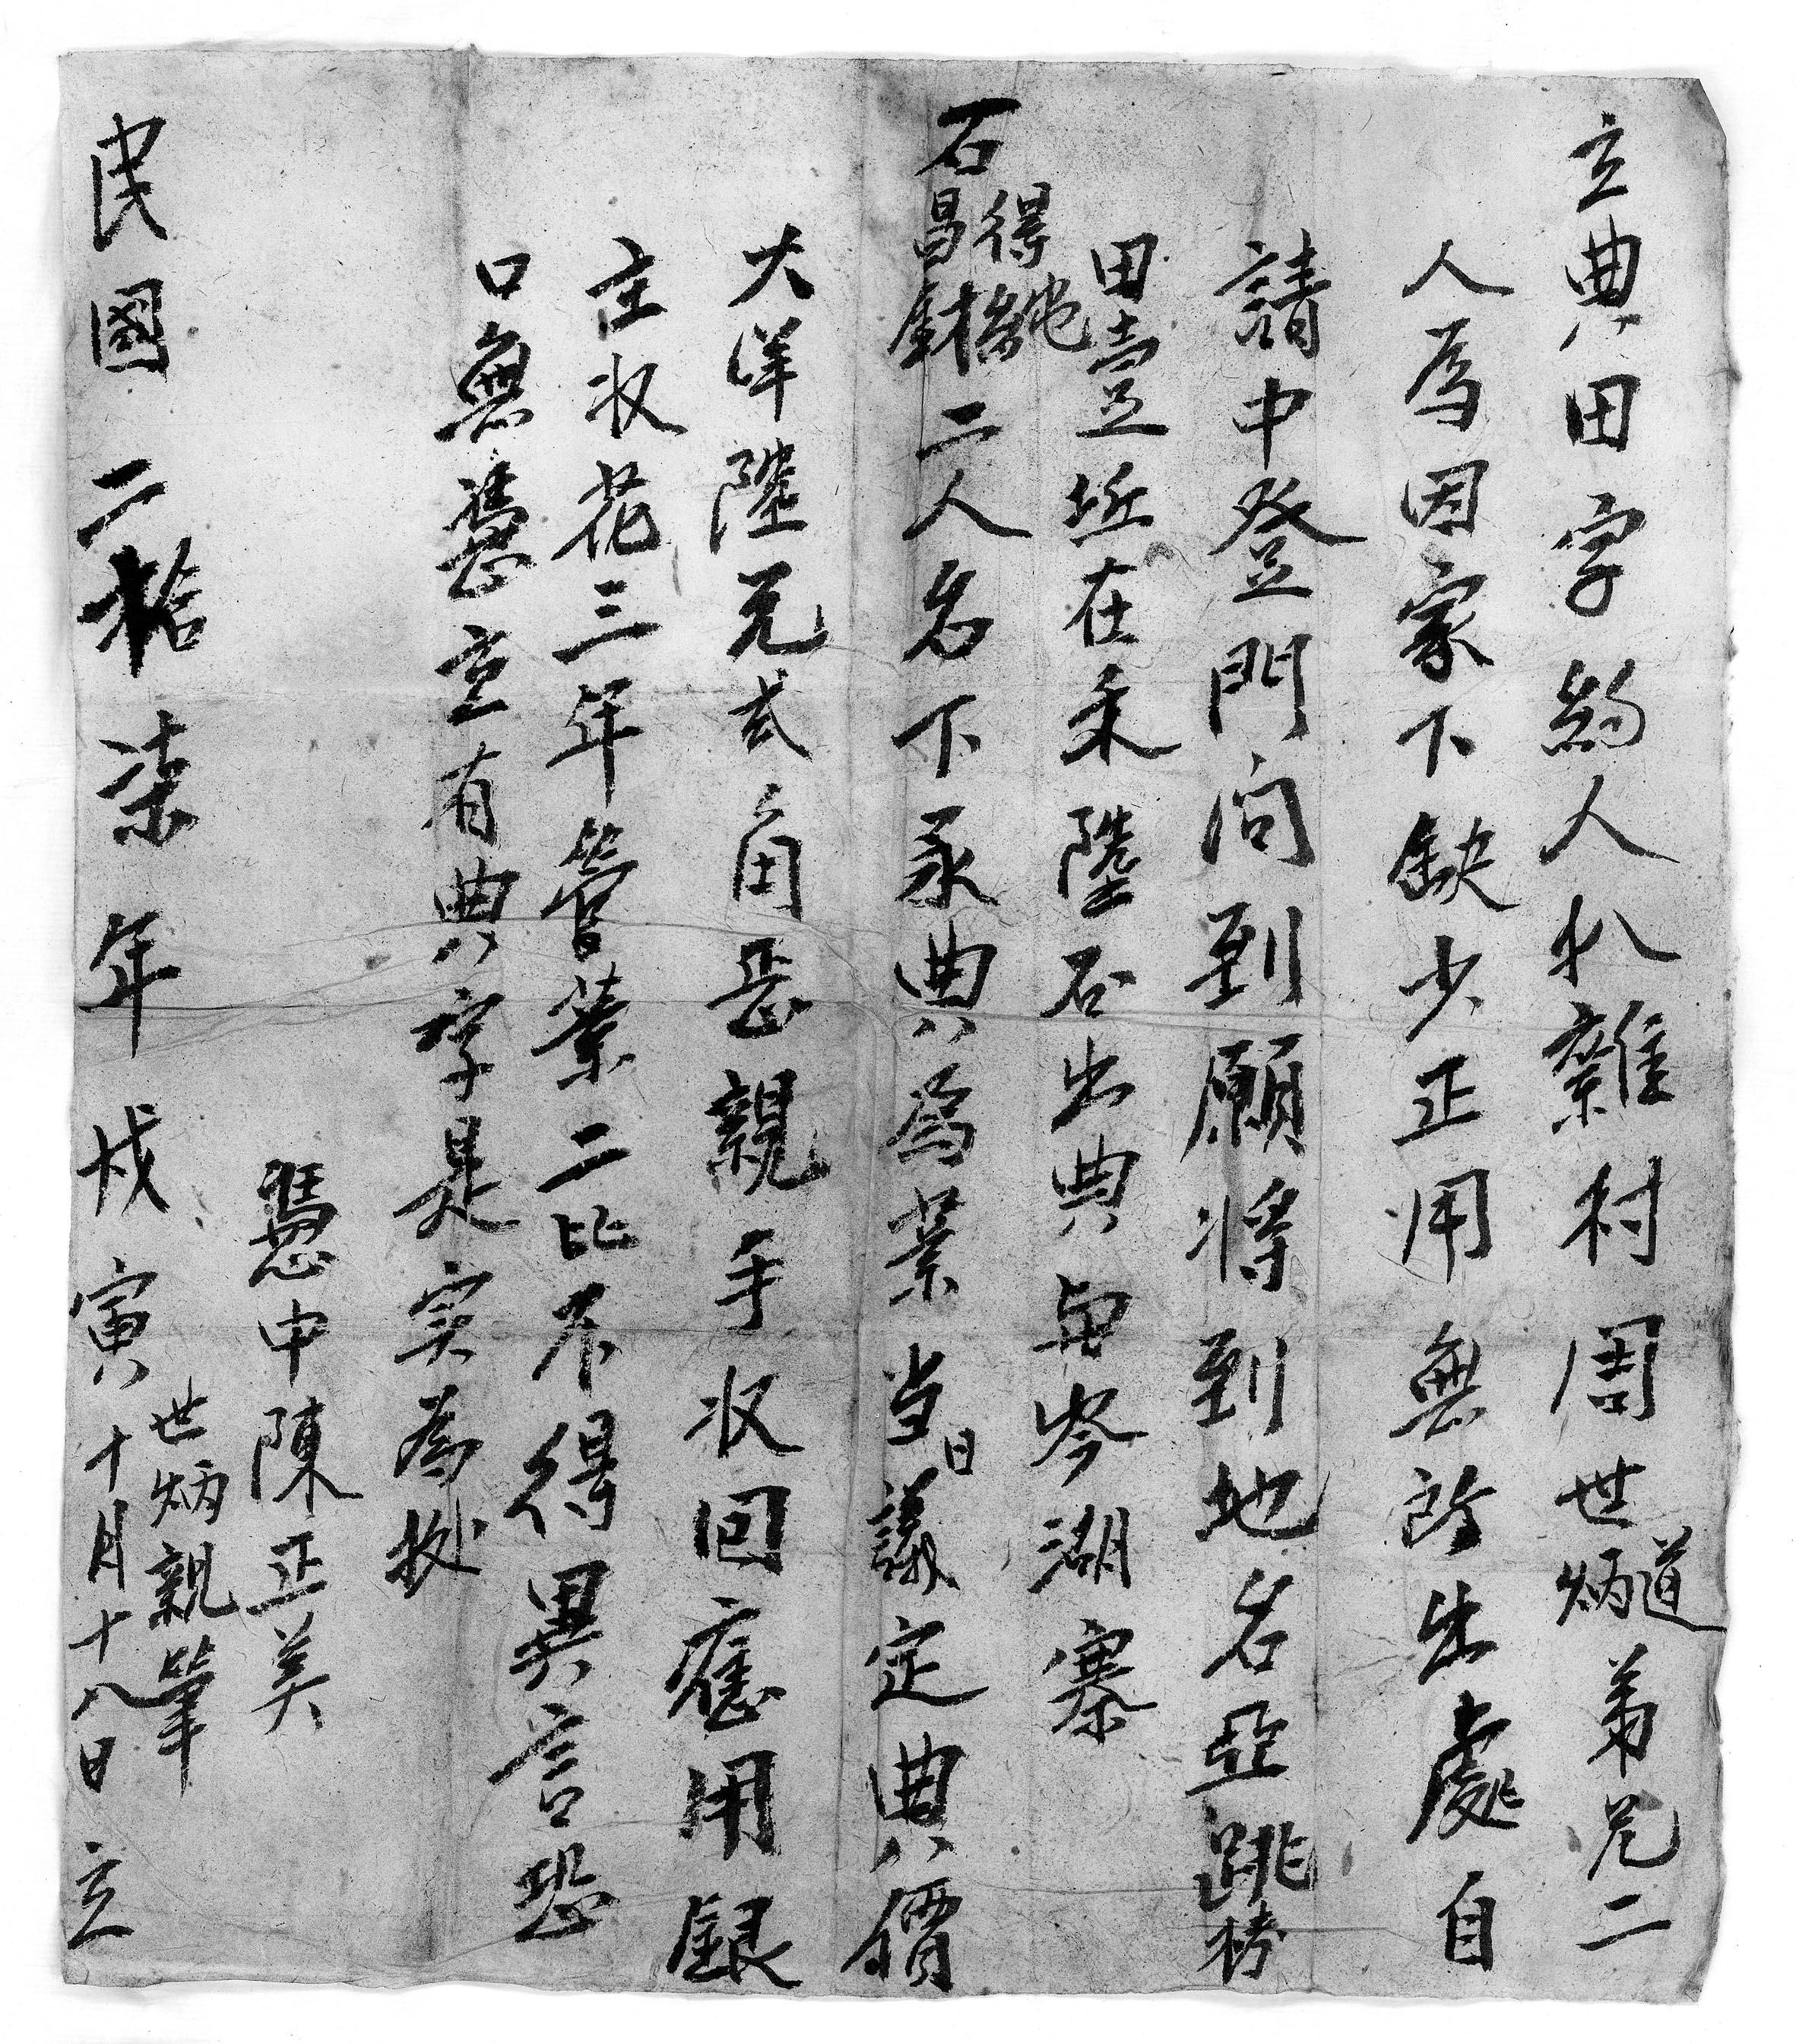 立典田字約人扒雜村周世道炳弟兄二
人為因家下缺少正用無所出處自
請中登門问到願将到地名亞跳榜
田壹坵在禾陸石出典與岑湖寨
石得昌二人名下承典為業当日議定典價
大洋陸元弍角悉親手收回應用銀
主收花三年管業二比不得異言恐
口無憑立有典字是实為據
憑中陳正美
世炳親筆
民國二拾柒年戊寅十月十八日立